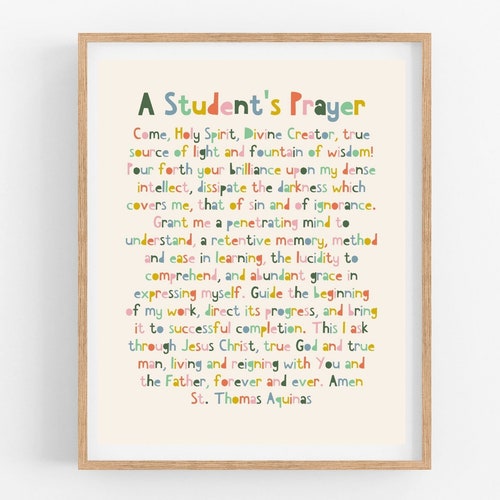 A Student's Prayer
Come, Holy Spirit, Divine Creator, true
source of light and fountain of wisdom!
Pour forth your brilliance upon my dense
intellect, dissipate the darkness which
covers me, that of sin and of ignorance.
Grant me a penetrating mind to
understand, a retentive memory, method
and ease in learning, the lucidity to
comprehend, and abundant grace in
expressing myself. Guide the beginning
of my work, direct its progress, and bring
it to successful completion. This I ask
through Jesus Christ, true God and true
man, living and reigning with You and
the Father, forever and ever. Amen
St. Thomas Aquinas